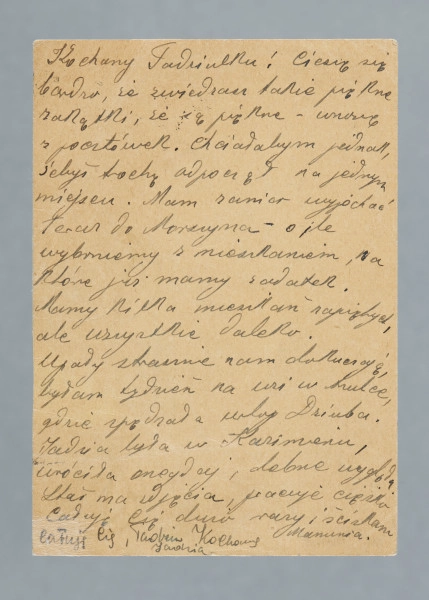 Kochany Tadziulku! Cieszę się
bardzo, że zwiedzasz takie piękne
zakątki, że są piękne – wnoszę
z pocztówek. Chciałabym jednak,
żebyś trochę odpoczął na jednym
miejscu. Mam zamiar wyjechać
teraz do Morszyna – o ile
wybrniemy z mieszkaniem, na
które już mamy zadatek.
Mamy kilka mieszkań
ale wszystkie daleko.
Upały strasznie nam dokuczają,
byłam tydzień na wsi w
gdzie spędzała urlop Dziuba.
Jadzia była w Kazimierzu,
wróciła onegdaj, dobrze wygląda
Staś ma zdjęcia, pracuje ciężko
Całuję Cię dużo razy i ściskam
Mamunia.
Całuję Cię, Tadziu Kochany
Jadzia